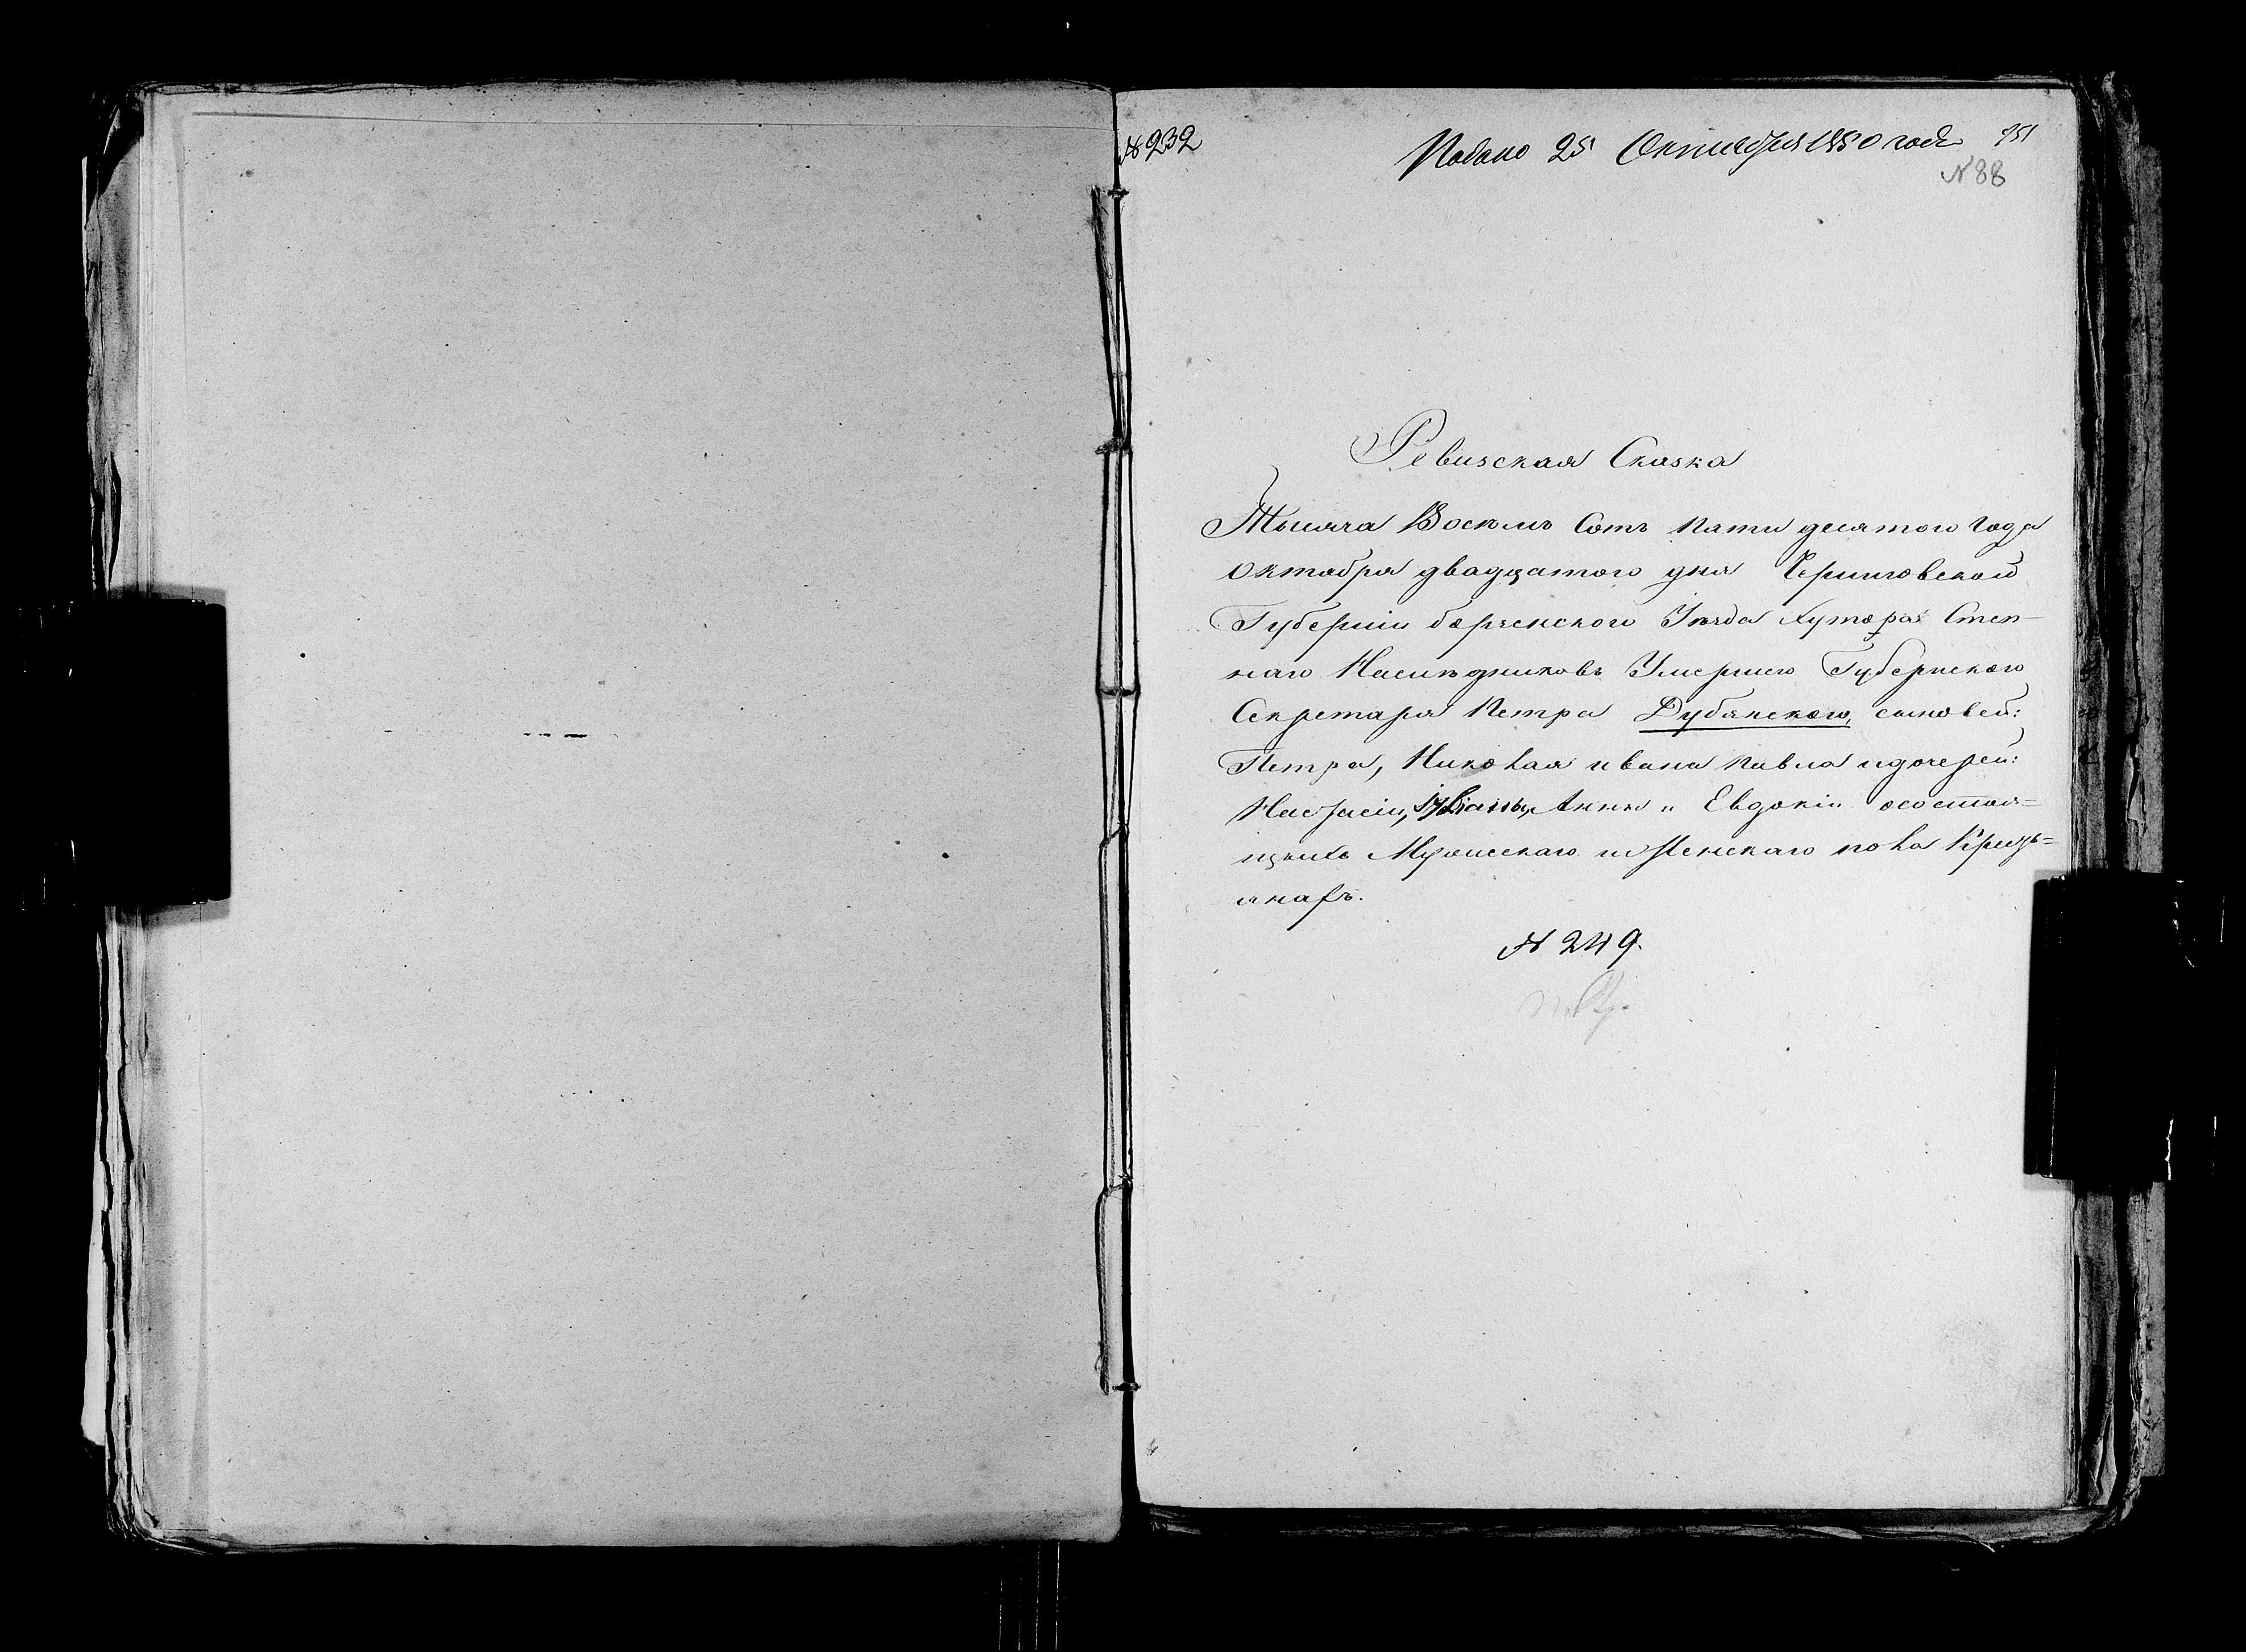 № 232
Подано 25 Октября 1850 года
951
№ 88
Ревизская Сказка
Тысяча Восемь Сотъ Пяти десятого Года
Октября двадцатого дня Черниговской
Губерніи борзенского Уезда Хутора Степ-
наго Наследниковъ Умершего Губернского
Секретаря Петра Дубянского, сыновей:
Петра, Николая ивана Павла идочерей:
Настасіи, Анны и Евдокіи осостоя=
щихъ Мужескаго и Женскаго пола Крестъ=
янахъ.
№ 249.